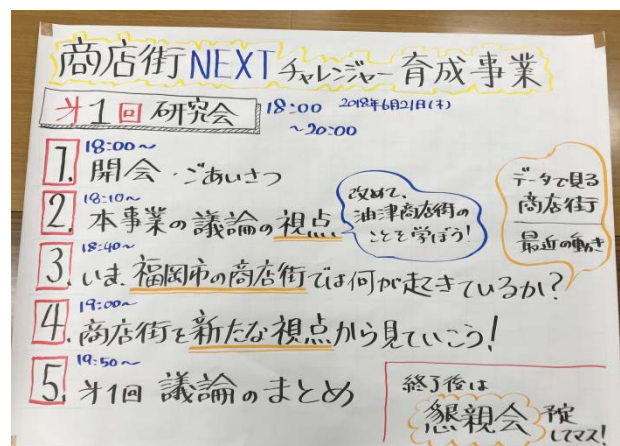 商店街NEXTチャレンジャー育成事業
㐧1回 研究会 18:00 2018年6月21日(木)
~20:00
18:00~
1. 開会・ごあいさつ
18:10~
2. 本事業の議論の視点
改めて、
油津商店街の
ことを学ぼう!
データで見る
商店街
最近の動き
18:40~
3. いま、福岡市の商店街では何が起きているか?
19:00~
4. 商店街を新たな視点から見ていこう!
19:50~
5. 㐧1回 議論のまとめ
終了後は
懇親会 予定
してマス!